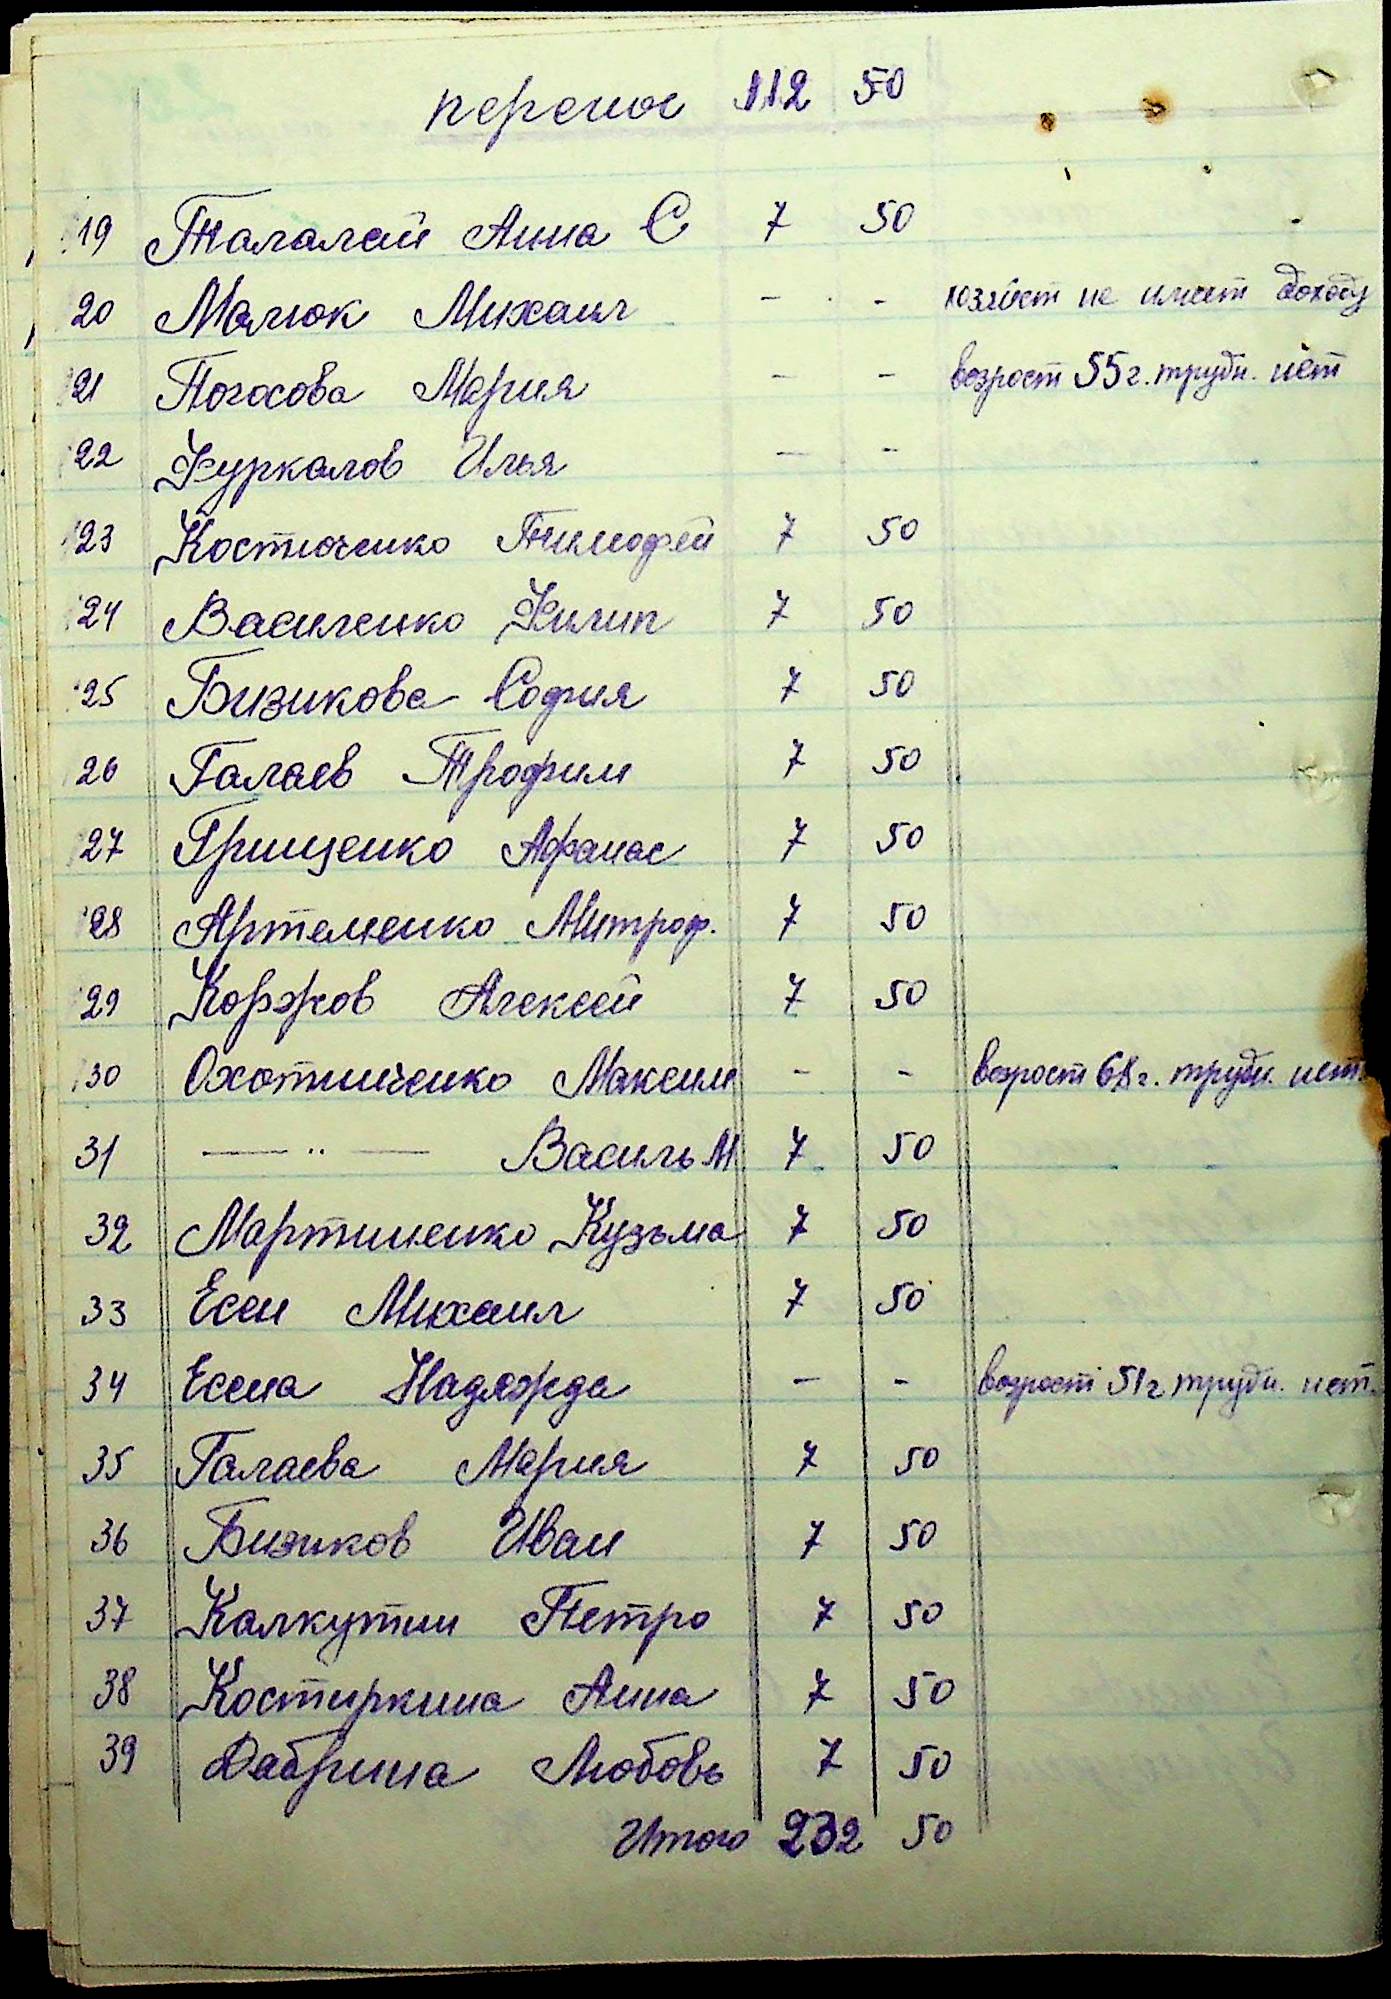 перенос 112 50
19 Талалай Анна С 7 50
20 Малюк Михаил - - хозяйст не имеет доходу
21 Погосова Мария - - возрост 55 г. труди. нет
22 Журкалов Илья - -
23 Костюченко Тимофей 7 50
24 Василенко Филип 7 50
25 Бизикова София 7 50
26 Галаев Трофим 7 50
27 Грищенко Афанас 7 50
28 Артеменко Митроф. 7 50
29 Коржов Алексей 7 50
30 Охотниченко Максим - - возрост 68 г. труди. нет.
31 — " — Василь М 7 50
32 Мартиненко Кузьма 7 50
33 Есен Михаил 7 50
34 Есена Надяжда - - возрост 51 г. труди. нет.
35 Галаева Мария 7 50
36 Бизиков Иван 7 50
37 Калкутин Петро 7 50
38 Костиркина Анна 7 50
39 Дабрина Любовь 7 50
Итого 232 50